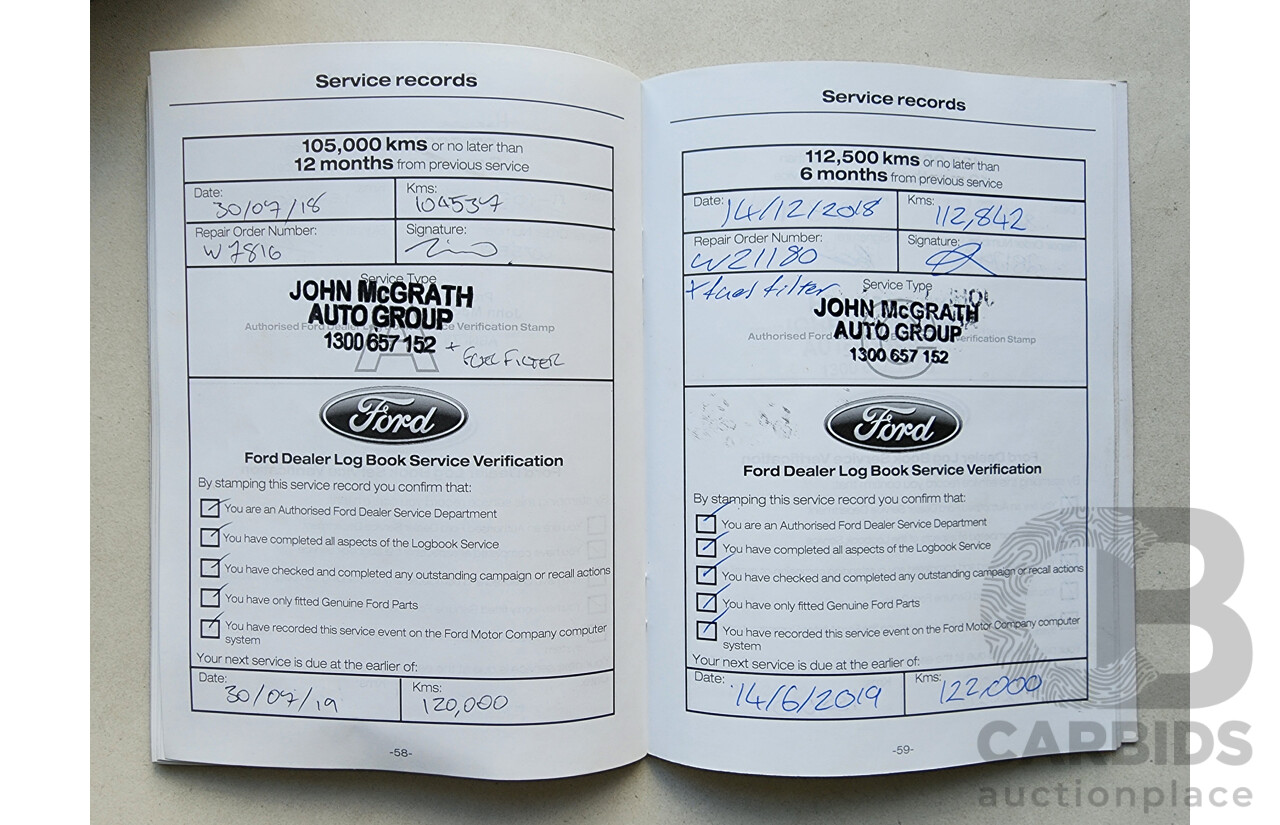 Service records
105,000 kms or no later than
12 months from previous service
Date:
30/07/18
Kms:
104537
Repair Order Number:
W7816
Signature:
Service Type
A
JOHN McGRATH
AUTO GROUP
1300 657 152
Authorised Ford Dealer Log Book Service Verification Stamp
+ FUEL FILTER
Ford
Ford Dealer Log Book Service Verification
By stamping this service record you confirm that:
You are an Authorised Ford Dealer Service Department
You have completed all aspects of the Logbook Service
You have checked and completed any outstanding campaign or recall actions
You have only fitted Genuine Ford Parts
You have recorded this service event on the Ford Motor Company computer
system
Your next service is due at the earlier of:
Date:
30/07/19
Kms:
120,000
-58-
Service records
112,500 kms or no later than
6 months from previous service
Date:
14/12/2018
Kms:
112,842
Repair Order Number:
W21180
Signature:
+ fuel filter
Service Type
JOHN McGRATH
AUTO GROUP
1300 657 152
Authorised Ford Verification Stamp
Ford
Ford Dealer Log Book Service Verification
By stamping this service record you confirm that:
You are an Authorised Ford Dealer Service Department
You have completed all aspects of the Logbook Service
You have checked and completed any outstanding campaign or recall actions
You have only fitted Genuine Ford Parts
You have recorded this service event on the Ford Motor Company computer
system
Your next service is due at the earlier of:
Date:
14/6/2019
Kms:
122,000
-59-
CARBIDS
auctionplace